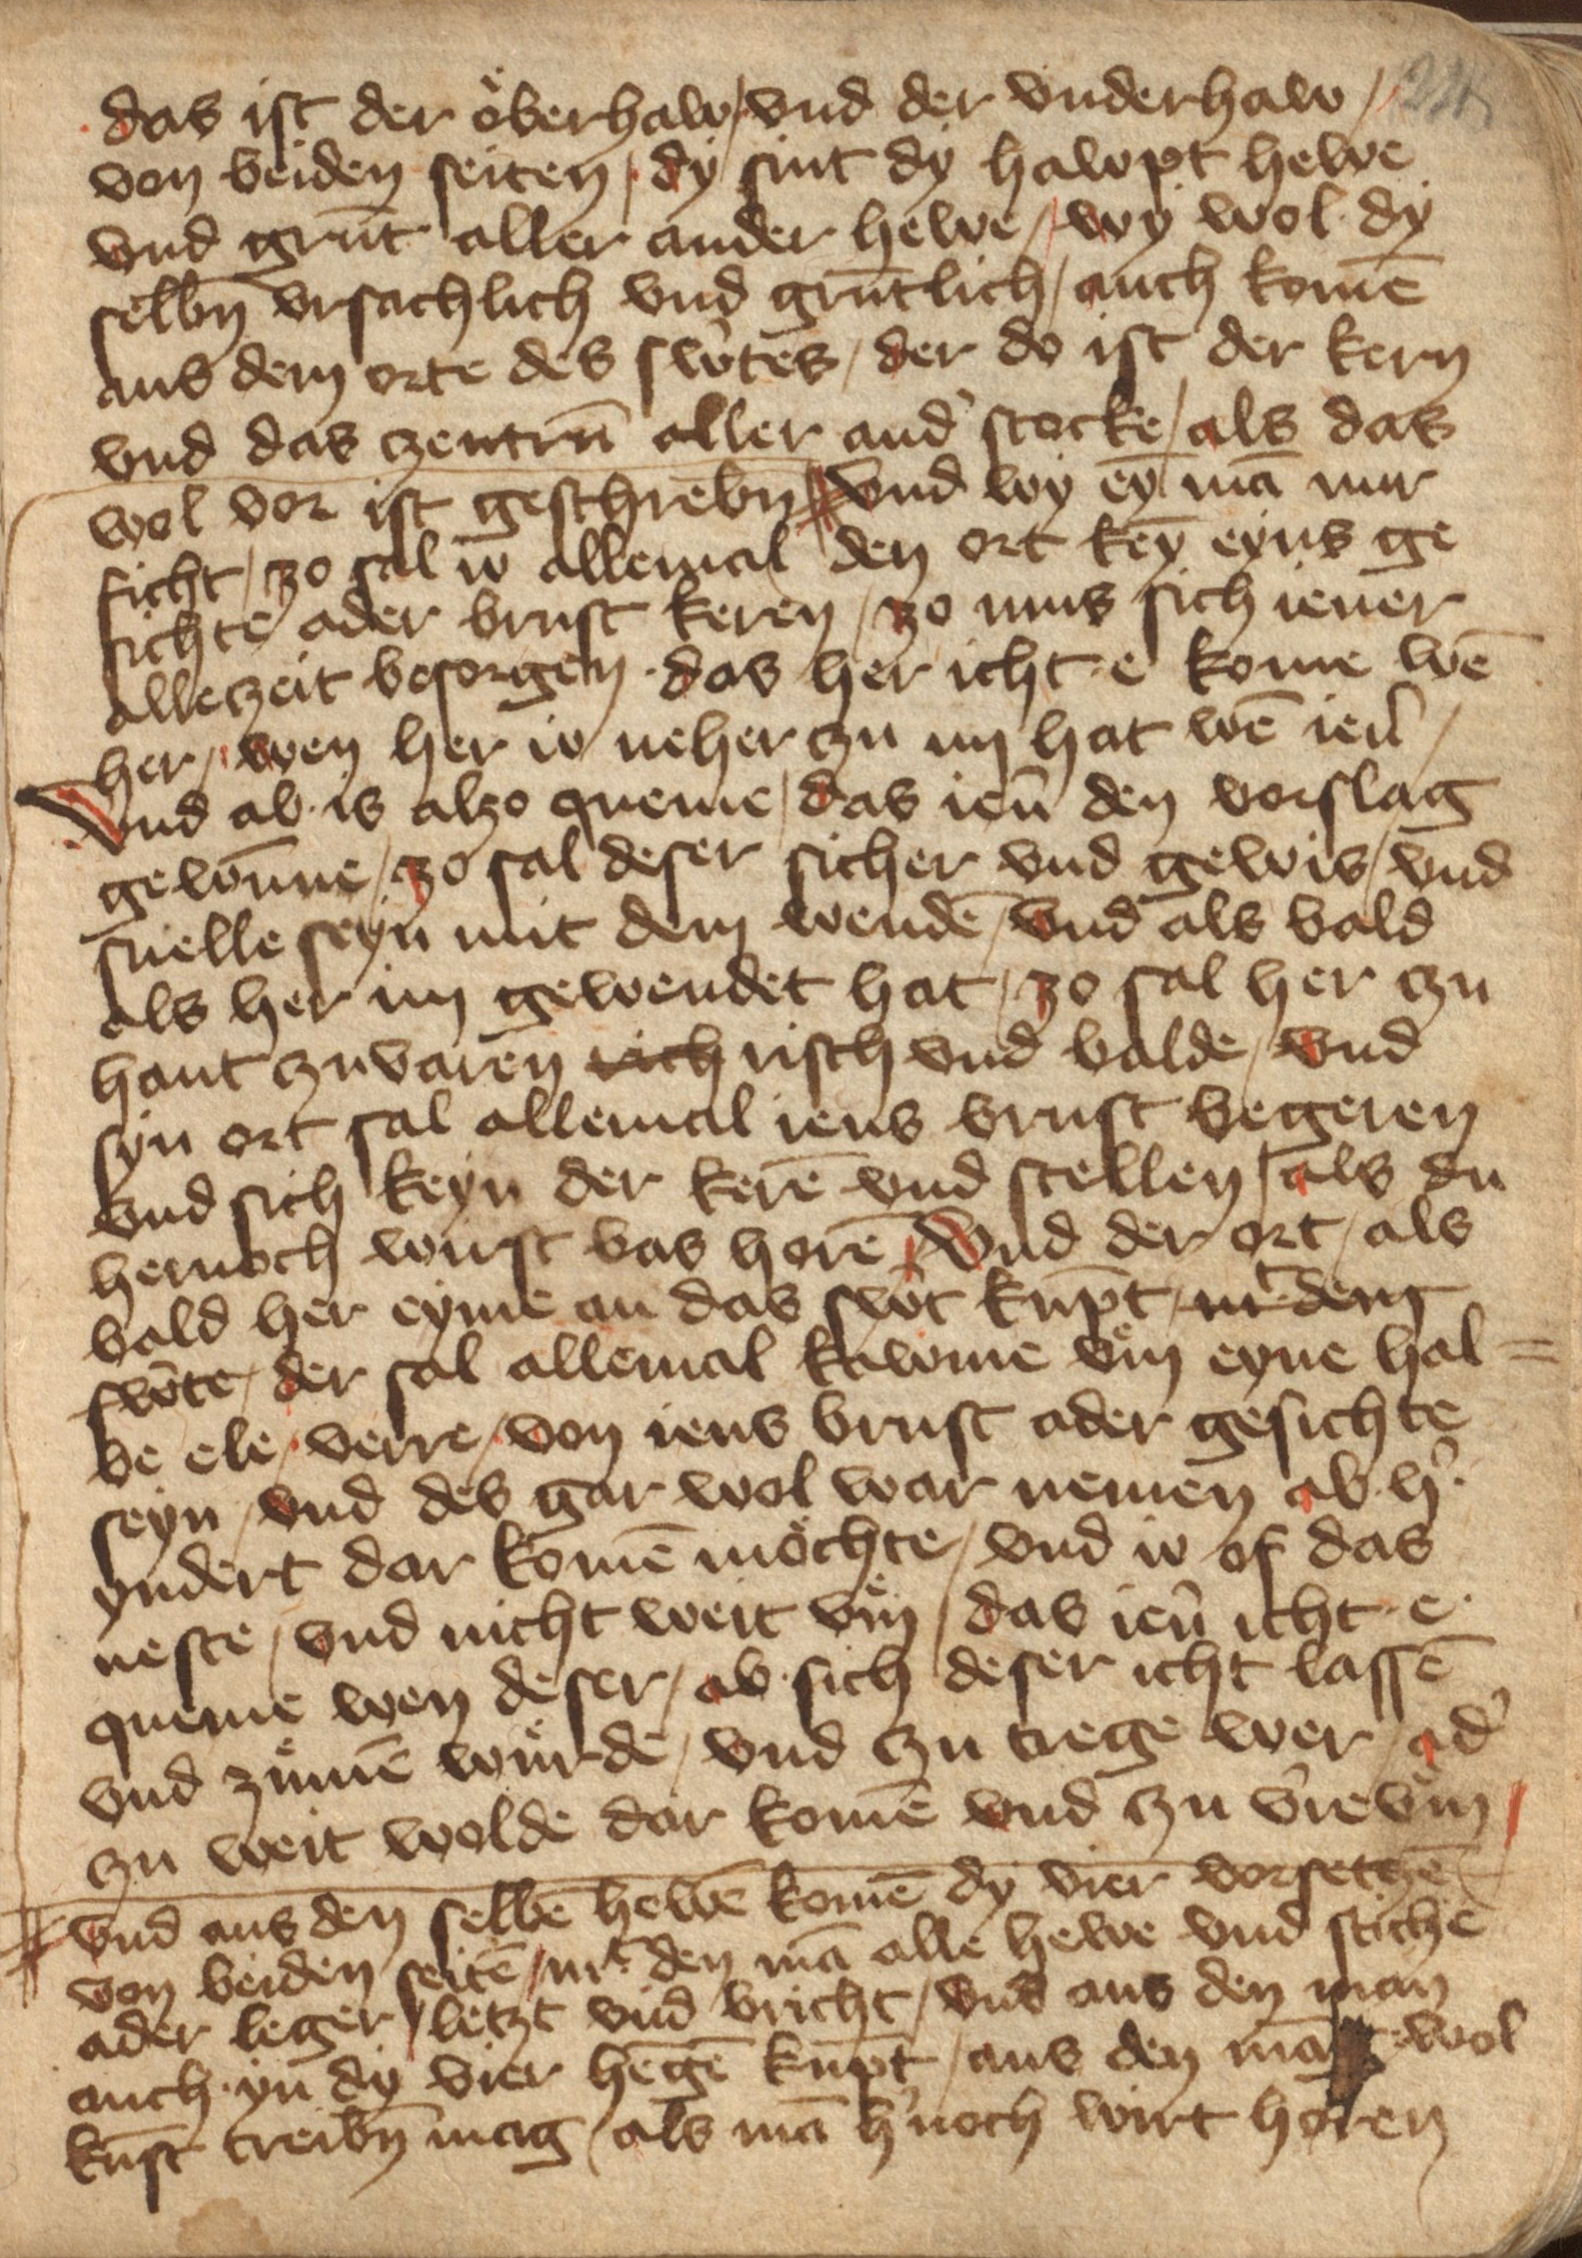 das ist der öberhaw / vnd der vnderhaw /
von beiden seiten / dy sint dy hawpt hewe
vnd grūt aller ander hewe / wy wol dy
selbn̄ vrsachlich vnd grūtlich / auch komē
aus dem orte des swˀtes / der do ist der kern
vnd das czentrū aller andˀ stocke / als das
wol vor ist geschrebn̄ / Vnd wy eȳ mā nur
ficht / zo sal io allemal den ort keȳ eyns ge
sichte ader brust keren / zo mus sich iener
alleczeit besorgen · das her icht · e kome wē
her / wen her io neher czu im hat wē ienˀ /
Vnd ab is alzo queme / das ienˀ den vorslag
gewūne / zo sal deser sicher vnd gewis / vnd
snelle seyn mit dem wendē / vnd als bald
als her im gewendet hat / zo sal her czu
hant czuvaren rich risch vnd balde / vnd
syn ort sal allemal iens brust begeren
vnd sich keyn der kerē vnd stellen / als du
hernoch wirst bas horē / Vnd der ort / als
bald her eyme an das swˀt kūpt / mᵗ dem
swˀte / der sal allemal kawme vm̊ eyne hal =
be ele / verre / von iens brust ader gesichte
seyn / vnd des gar wol war nemen ab hˀ
yndert dar komē möchte / vnd io of das
neste / vnd nicht weit vm̊ / das ienˀ icht · e ·
queme wen deser / ab sich deser icht lassē
vnd zůmē wůrde / vnd czu trege wer / adˀ
czu weit wolde dar komē vnd czu vˀre vm̊ /
vnd aus den selbē hewē komē dy vier vorsetczē
von beiden seitē / mᵗ den mā alle hewe vnd stiche
ader leger / letzt vnd bricht / vnd aus den man
auch yn dy vier hēgē kūpt / aus den mā wol
kūst treibn̄ mag / als mā hˀnoch wirt horen